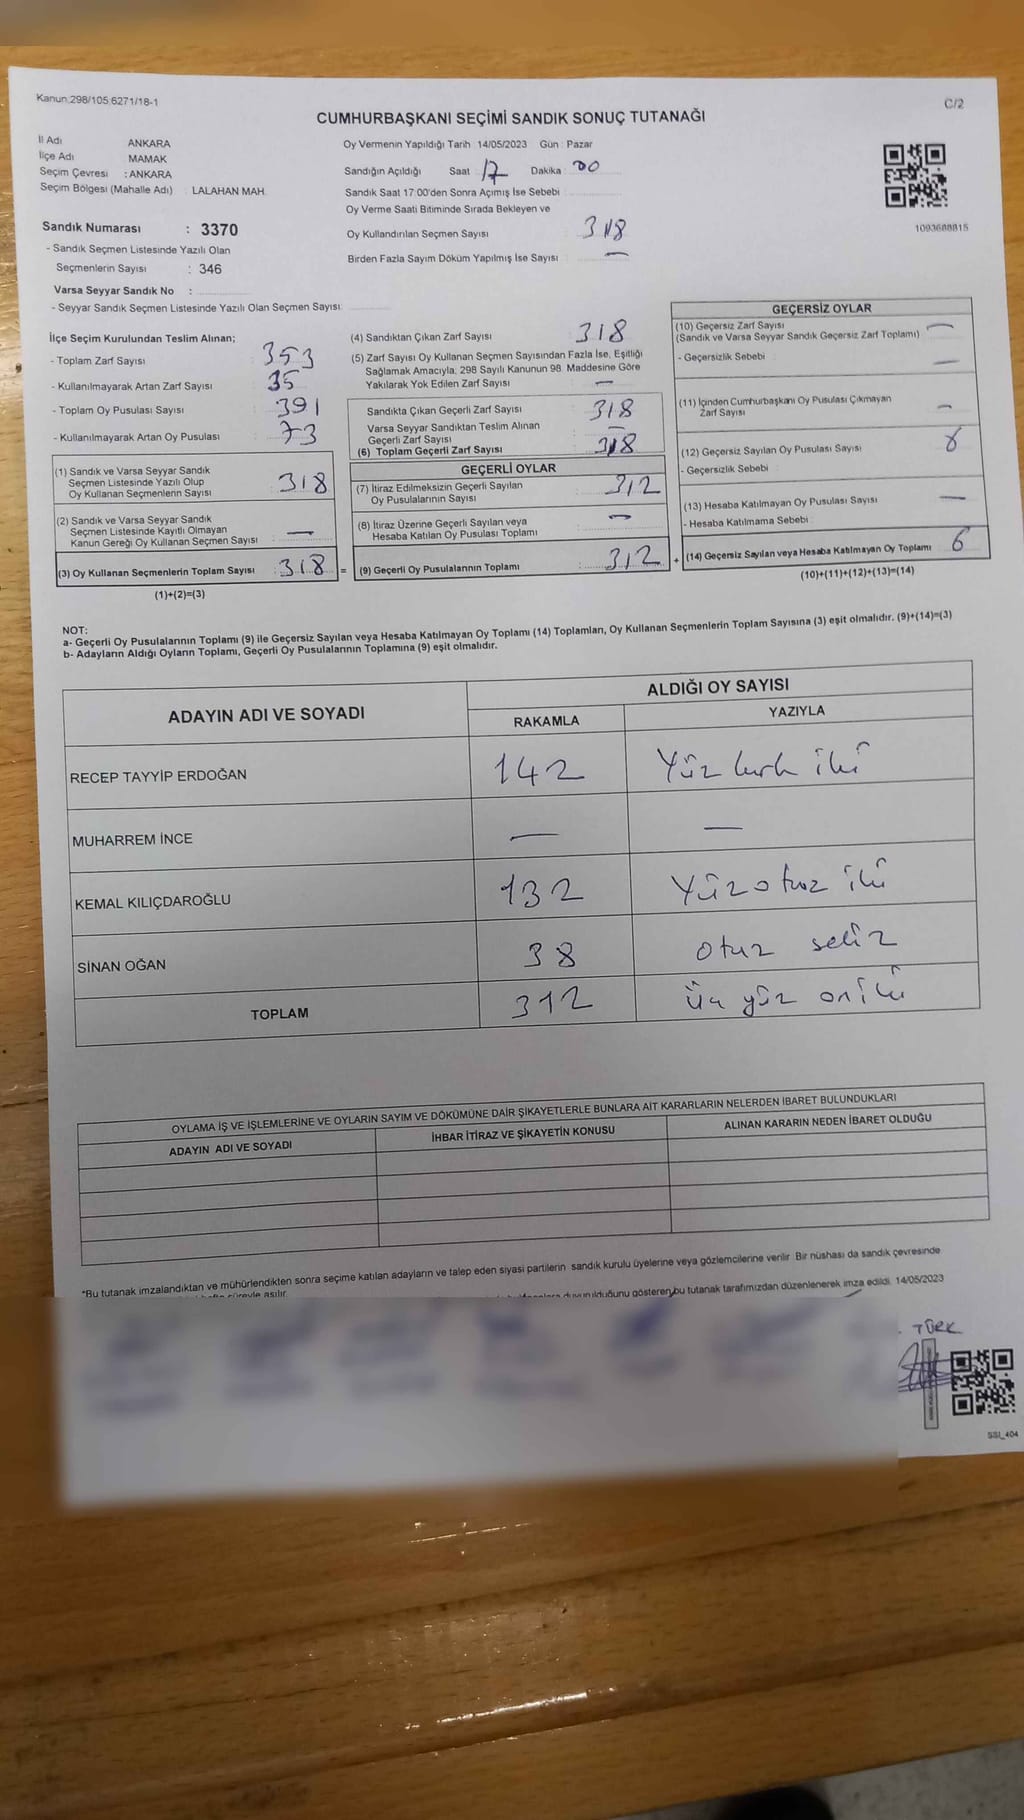 Kanun.298/105,6271/18-1
C/2
CUMHURBAŞKANI SEÇİMİ SANDIK SONUÇ TUTANAĞI
İl Adı ANKARA
İlçe Adı MAMAK
Seçim Çevresi : ANKARA
Seçim Bölgesi (Mahalle Adı) : LALAHAN MAH.
Sandık Numarası : 3370
- Sandık Seçmen Listesinde Yazılı Olan
Seçmenlerin Sayısı : 346
Varsa Seyyar Sandık No :
- Seyyar Sandık Seçmen Listesinde Yazılı Olan Seçmen Sayısı:
Oy Vermenin Yapıldığı Tarih : 14/05/2023 Gün : Pazar
Sandığın Açıldığı Saat 17 Dakika : 00
Sandık Saat 17:00'den Sonra Açımış İse Sebebi :
Oy Verme Saati Bitiminde Sırada Bekleyen ve
Oy Kullandırılan Seçmen Sayısı : 318
Birden Fazla Sayım Döküm Yapılmış İse Sayısı : —
1093688815
İlçe Seçim Kurulundan Teslim Alınan;
- Toplam Zarf Sayısı : 353
- Kullanılmayarak Artan Zarf Sayısı : 35
- Toplam Oy Pusulası Sayısı : 391
- Kullanılmayarak Artan Oy Pusulası : 73
(1) Sandık ve Varsa Seyyar Sandık
Seçmen Listesinde Yazılı Olup
Oy Kullanan Seçmenlerin Sayısı : 318
(2) Sandık ve Varsa Seyyar Sandık
Seçmen Listesinde Kayıtlı Olmayan
Kanun Gereği Oy Kullanan Seçmen Sayısı : —
(3) Oy Kullanan Seçmenlerin Toplam Sayısı : 318 =
(1)+(2)=(3)
(4) Sandıktan Çıkan Zarf Sayısı : 318
(5) Zarf Sayısı Oy Kullanan Seçmen Sayısından Fazla İse, Eşitliği
Sağlamak Amacıyla, 298 Sayılı Kanunun 98. Maddesine Göre
Yakılarak Yok Edilen Zarf Sayısı : —
Sandıkta Çıkan Geçerli Zarf Sayısı : 318
Varsa Seyyar Sandıktan Teslim Alınan
Geçerli Zarf Sayısı : —
(6) Toplam Geçerli Zarf Sayısı : 318
GEÇERLİ OYLAR
(7) İtiraz Edilmeksizin Geçerli Sayılan
Oy Pusulalarının Sayısı : 312
(8) İtiraz Üzerine Geçerli Sayılan veya
Hesaba Katılan Oy Pusulası Toplamı : —
(9) Geçerli Oy Pusulalarının Toplamı : 312 +
GEÇERSİZ OYLAR
(10) Geçersiz Zarf Sayısı —
(Sandık ve Varsa Seyyar Sandık Geçersiz Zarf Toplamı)
- Geçersizlik Sebebi : —
(11) İçinden Cumhurbaşkanı Oy Pusulası Çıkmayan
Zarf Sayısı : —
(12) Geçersiz Sayılan Oy Pusulası Sayısı : 6
- Geçersizlik Sebebi :
(13) Hesaba Katılmayan Oy Pusulası Sayısı : —
- Hesaba Katılmama Sebebi :
(14) Geçersiz Sayılan veya Hesaba Katılmayan Oy Toplamı : 6
(10)+(11)+(12)+(13)=(14)
NOT:
a- Geçerli Oy Pusulalarının Toplamı (9) ile Geçersiz Sayılan veya Hesaba Katılmayan Oy Toplamı (14) Toplamları, Oy Kullanan Seçmenlerin Toplam Sayısına (3) eşit olmalıdır. (9)+(14)=(3)
b- Adayların Aldığı Oyların Toplamı, Geçerli Oy Pusulalarının Toplamına (9) eşit olmalıdır.
ADAYIN ADI VE SOYADI ALDIĞI OY SAYISI
RAKAMLA YAZIYLA
RECEP TAYYİP ERDOĞAN 142 Yüz kırk iki
MUHARREM İNCE — —
KEMAL KILIÇDAROĞLU 132 Yüz otuz iki
SİNAN OĞAN 38 otuz sekiz
TOPLAM 312 üç yüz on iki
OYLAMA İŞ VE İŞLEMLERİNE VE OYLARIN SAYIM VE DÖKÜMÜNE DAİR ŞİKAYETLERLE BUNLARA AİT KARARLARIN NELERDEN İBARET BULUNDUKLARI
ADAYIN ADI VE SOYADI İHBAR İTİRAZ VE ŞİKAYETİN KONUSU ALINAN KARARIN NEDEN İBARET OLDUĞU
*Bu tutanak imzalandıktan ve mühürlendikten sonra seçime katılan adayların ve talep eden siyasi partilerin sandık kurulu üyelerine veya gözlemcilerine verilir. Bir nüshası da sandık çevresinde
süreyle asılır. duyurulduğunu gösteren bu tutanak tarafımızdan düzenlenerek imza edildi. 14/05/2023
TÜRK
SSI_404